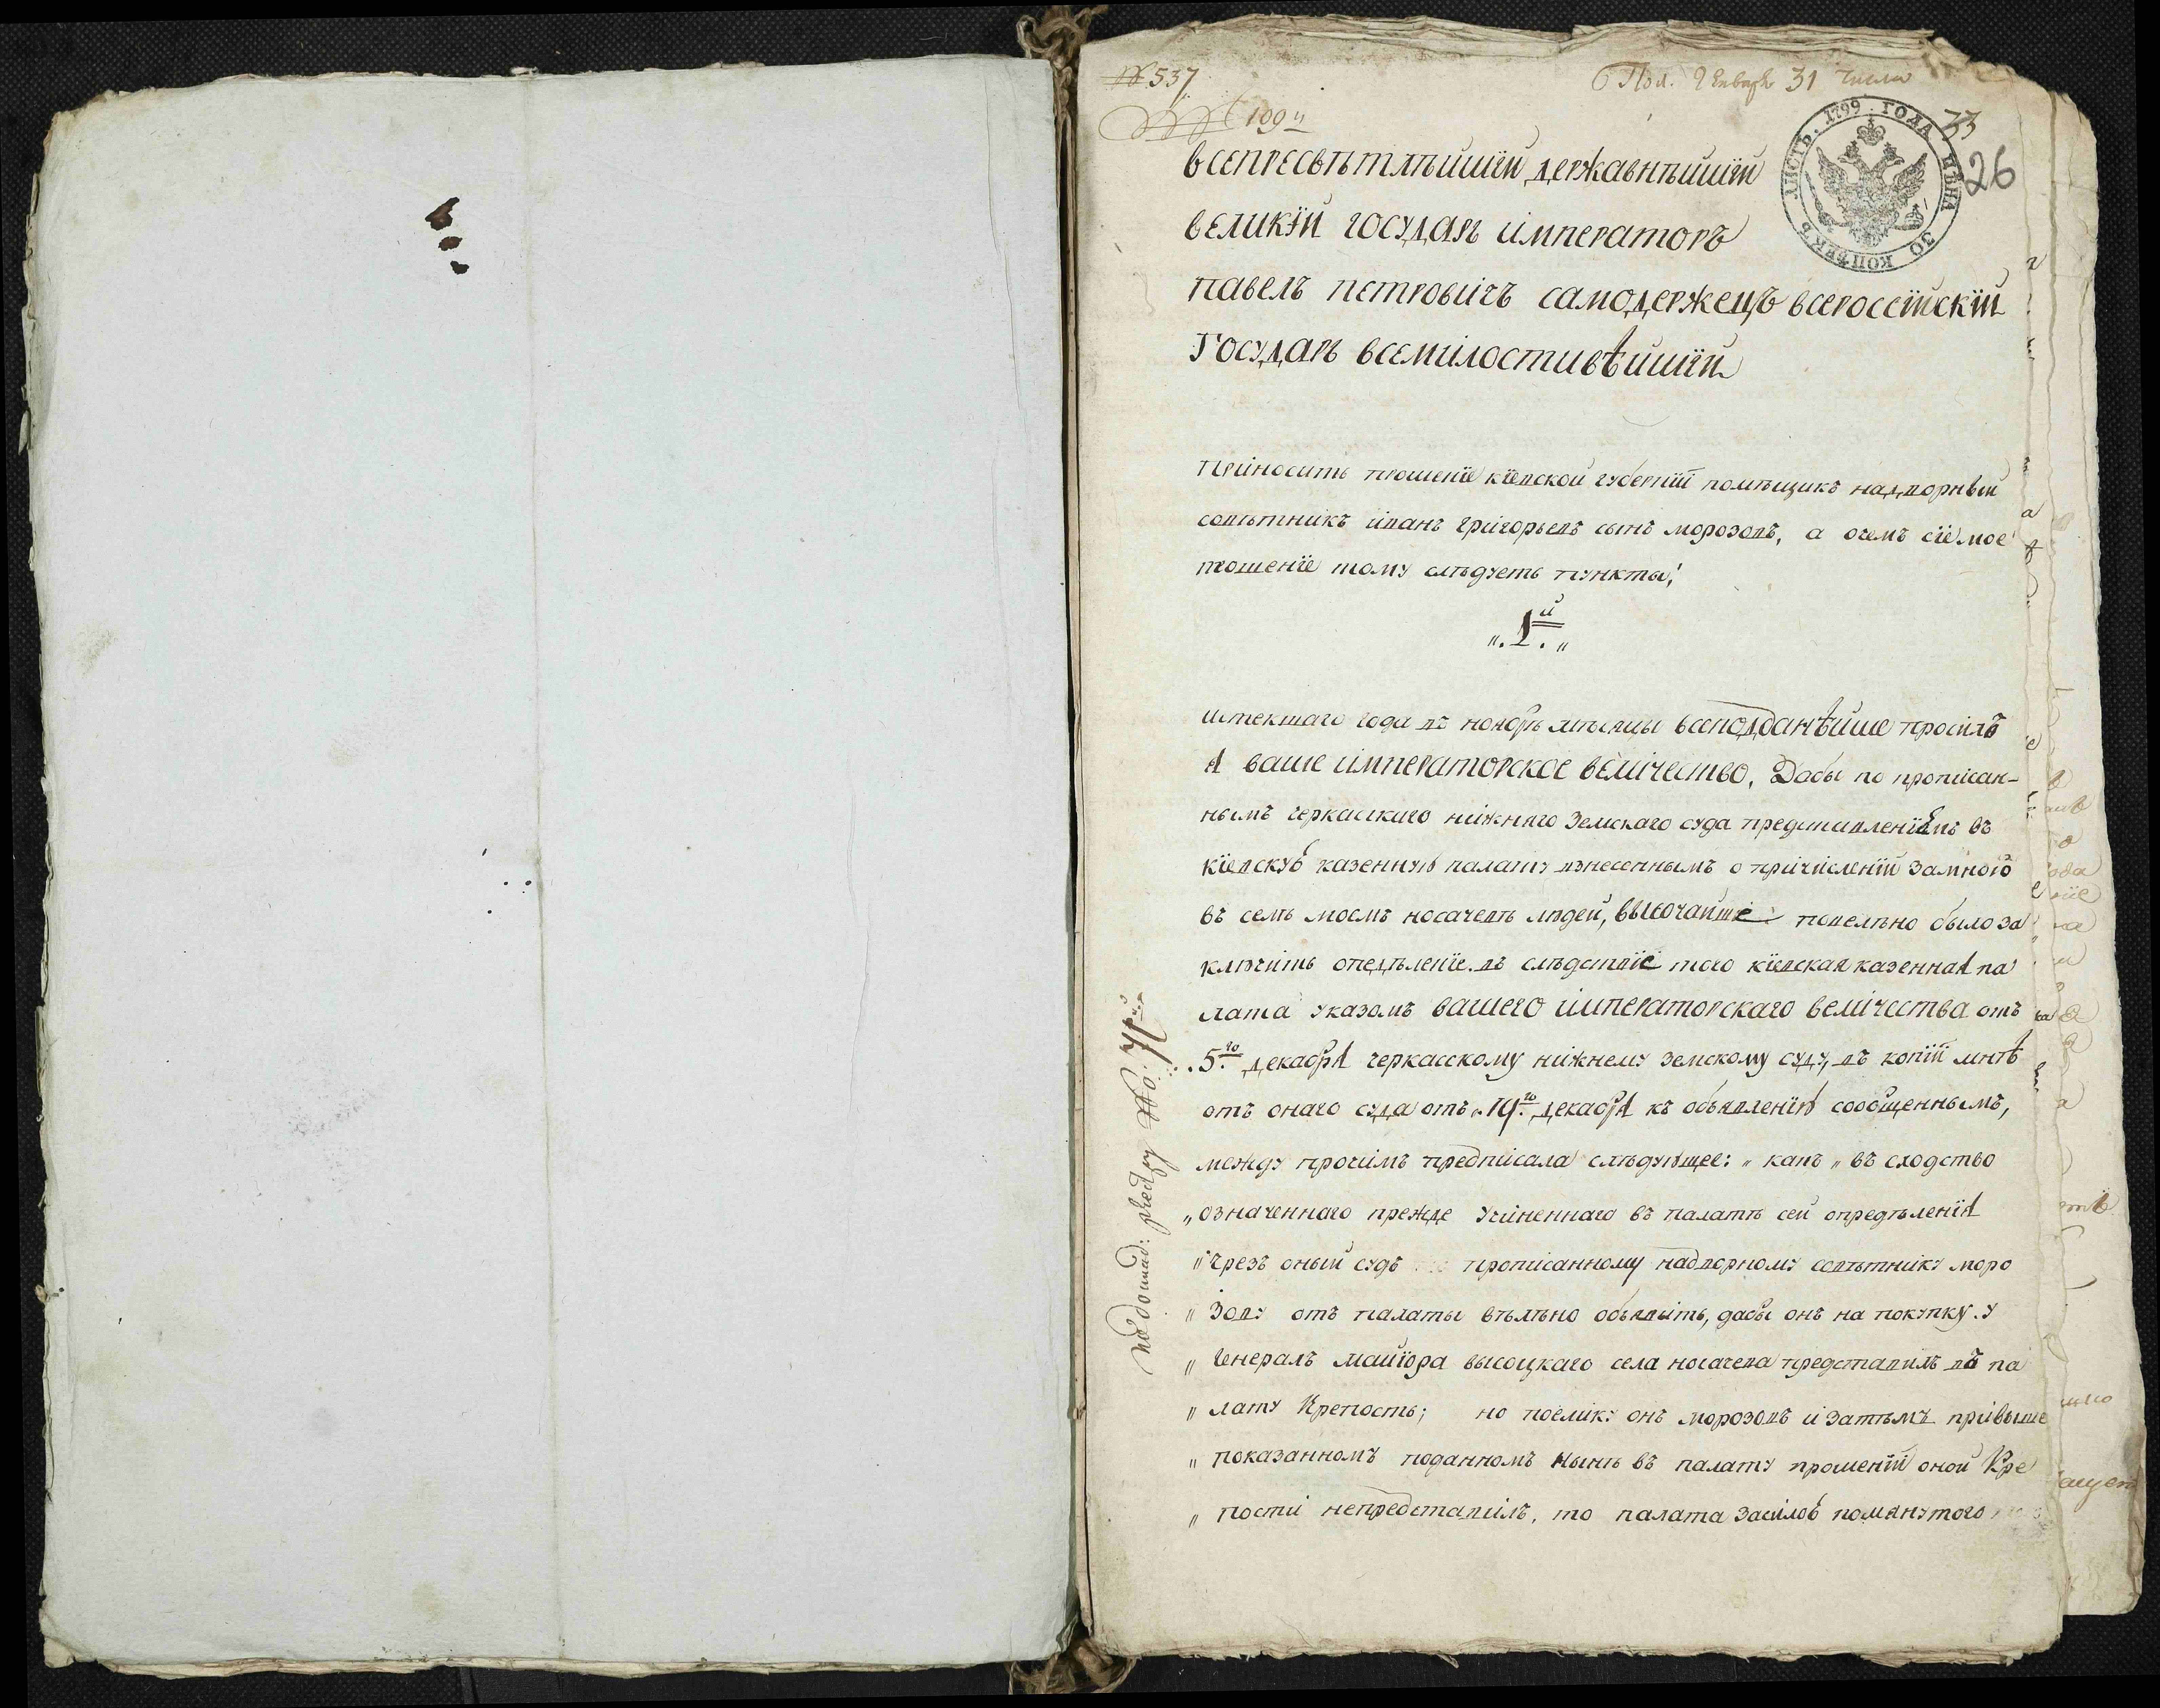 № 537
Пол. Генваря 31 числа
109
33
26
ЛИСТЪ. 1799 ГОДА ЦѢНА 30 КОПѢЕКЪ
Всепресвѣтлѣйшїй державнѣйшїй
великїй государь императоръ
павелъ петровичъ самодержецъ всероссїйскїй
Государь всемилостивѣйшїй
приноситъ прошенїе кїевской губернїи помѣщикъ надворный
совѣтникъ иванъ григорьевъ сынъ морозовъ, а очемъ сїе мое
прошенїе тому слѣдуетъ пункты:
„.1.й„
истекшаго года въ ноябрѣ мѣсяцы всеподданѣйше просилъ
я ваше императорское величество, Дабы по прописан-
нымъ черкаскаго нижняго Земскаго суда представленїемъ въ
кїевскую казенную палату внесеннымъ о причисленїи Замною
въ селѣ моемъ носачевѣ людей, высочайше повелѣно было за
ключить опедѣленїе. въ слѣдствїе того кїевская казенная па
лата указомъ вашего императорскаго величества отъ
5го декабря черкасскому нижнему земскому суду, въ копїи мнѣ
отъ онаго суда отъ 19го декабря къ объявленїю сообщеннымъ,
между прочимъ предписала слѣдующее: „какъ „ въ сходство
„означеннаго прежде учиненнаго въ палатѣ сей опредѣленїя
„чрезъ оный судъ прописанному надворному совѣтнику моро
„зову отъ палаты вѣлѣно объявить, дабы онъ на покупку у
„Генералъ майїора высоцкаго села носачева представилъ въ па
„лату Крепость; но поелику онъ морозовъ и затѣмъ привыше
„показанномъ поданномъ нынѣ въ палату прошенїи оной Кре
„пости непредставилъ, то палата засилою помянутого